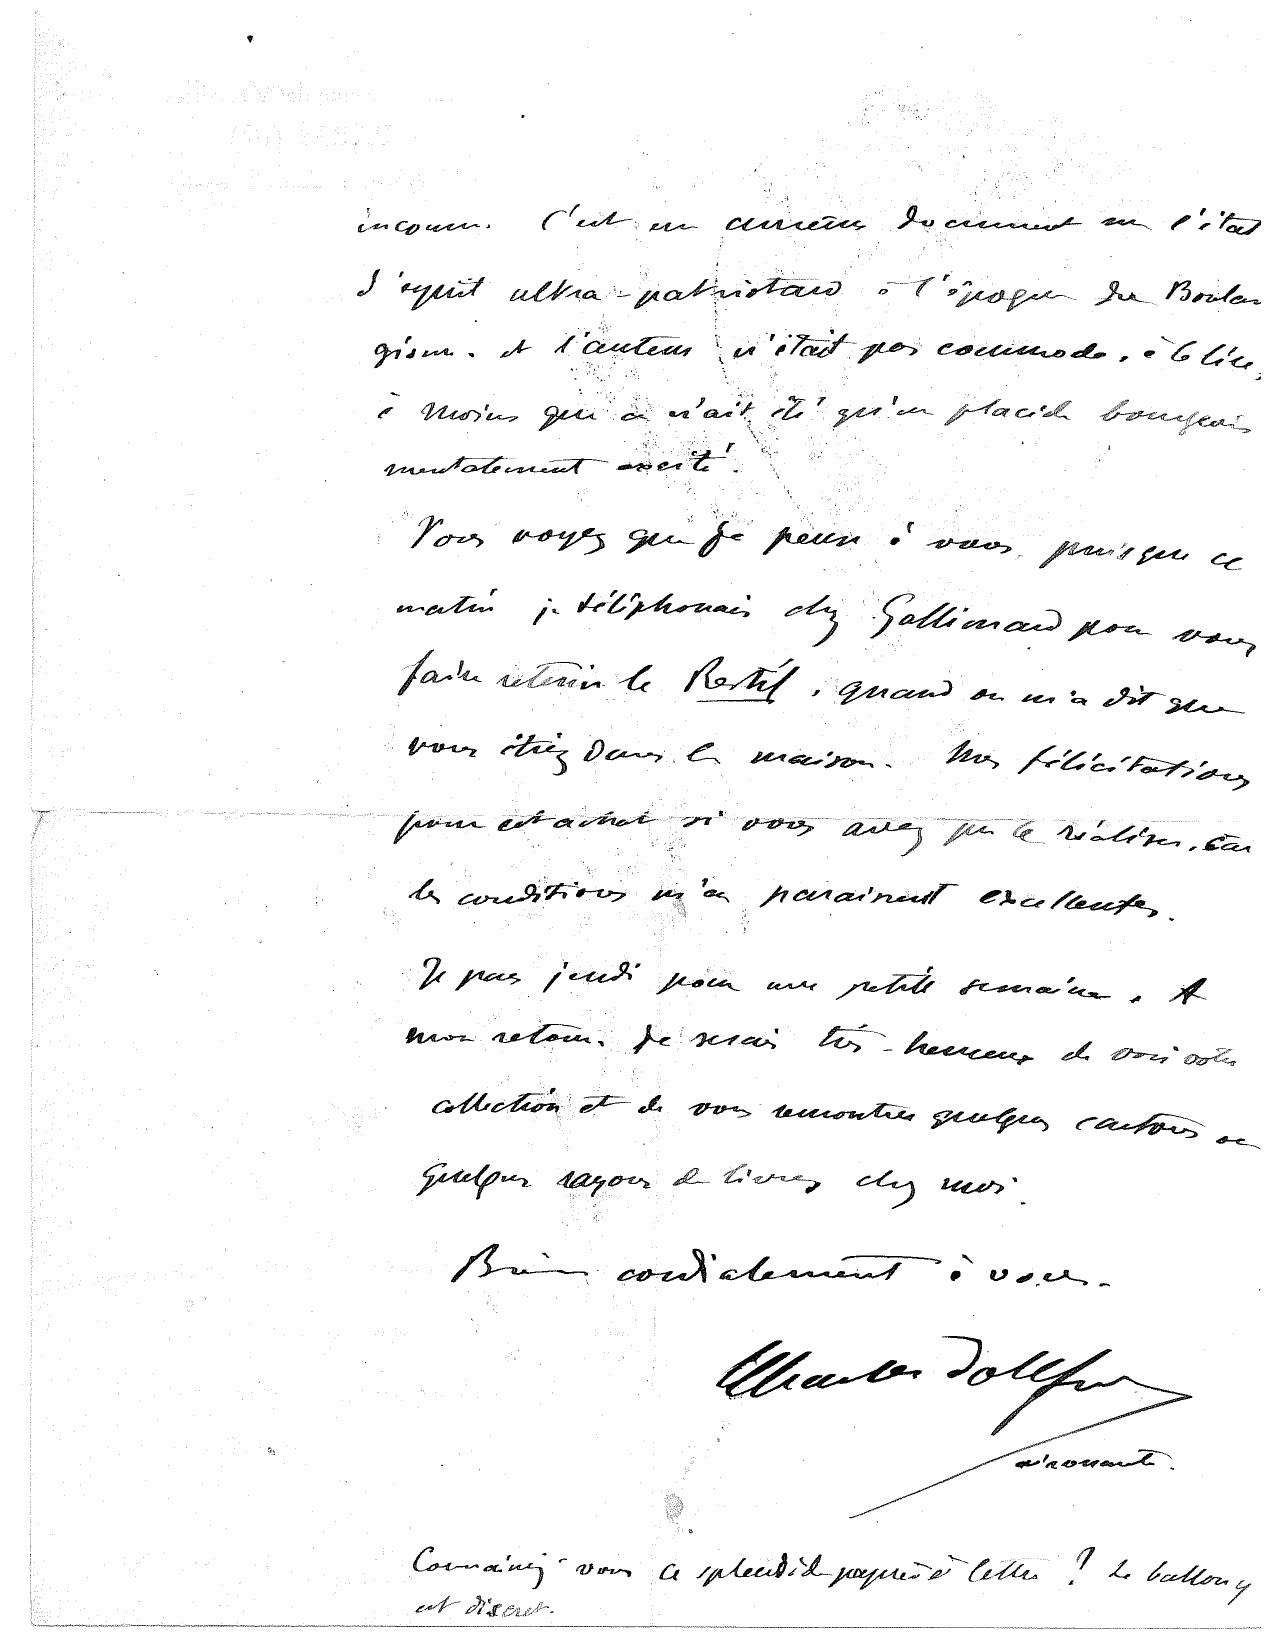 inconnu. C'est un curieux document sur l'état
d'esprit ultra-patriotard à l'époque du Boulan
gisme. et l'auteur n'était pas commode, à le lire,
à moins que ce n'ait été qu'un placide bourgeois
mentalement excité.
Vous voyez que je pense à vous, puisque ce
matin je téléphonais chez Gallimard pour vous
faire retenir le Restif, quand on m'a dit que
vous étiez dans la maison. Mes félicitations
pour cet achat si vous avez pu le réaliser, car
les conditions m'en paraissent excellentes.
Je pars jeudi pour une petite semaine. A
mon retour, je serais très-heureux de voir votre
collection et de vous remontrer quelques cartons ou
quelques rayons de livres chez moi.
Bien cordialement à vous.
Charles Dollfus
aéronaute.
Connaissiez-vous ce splendide papier à lettre ? Le ballon y
est discret.